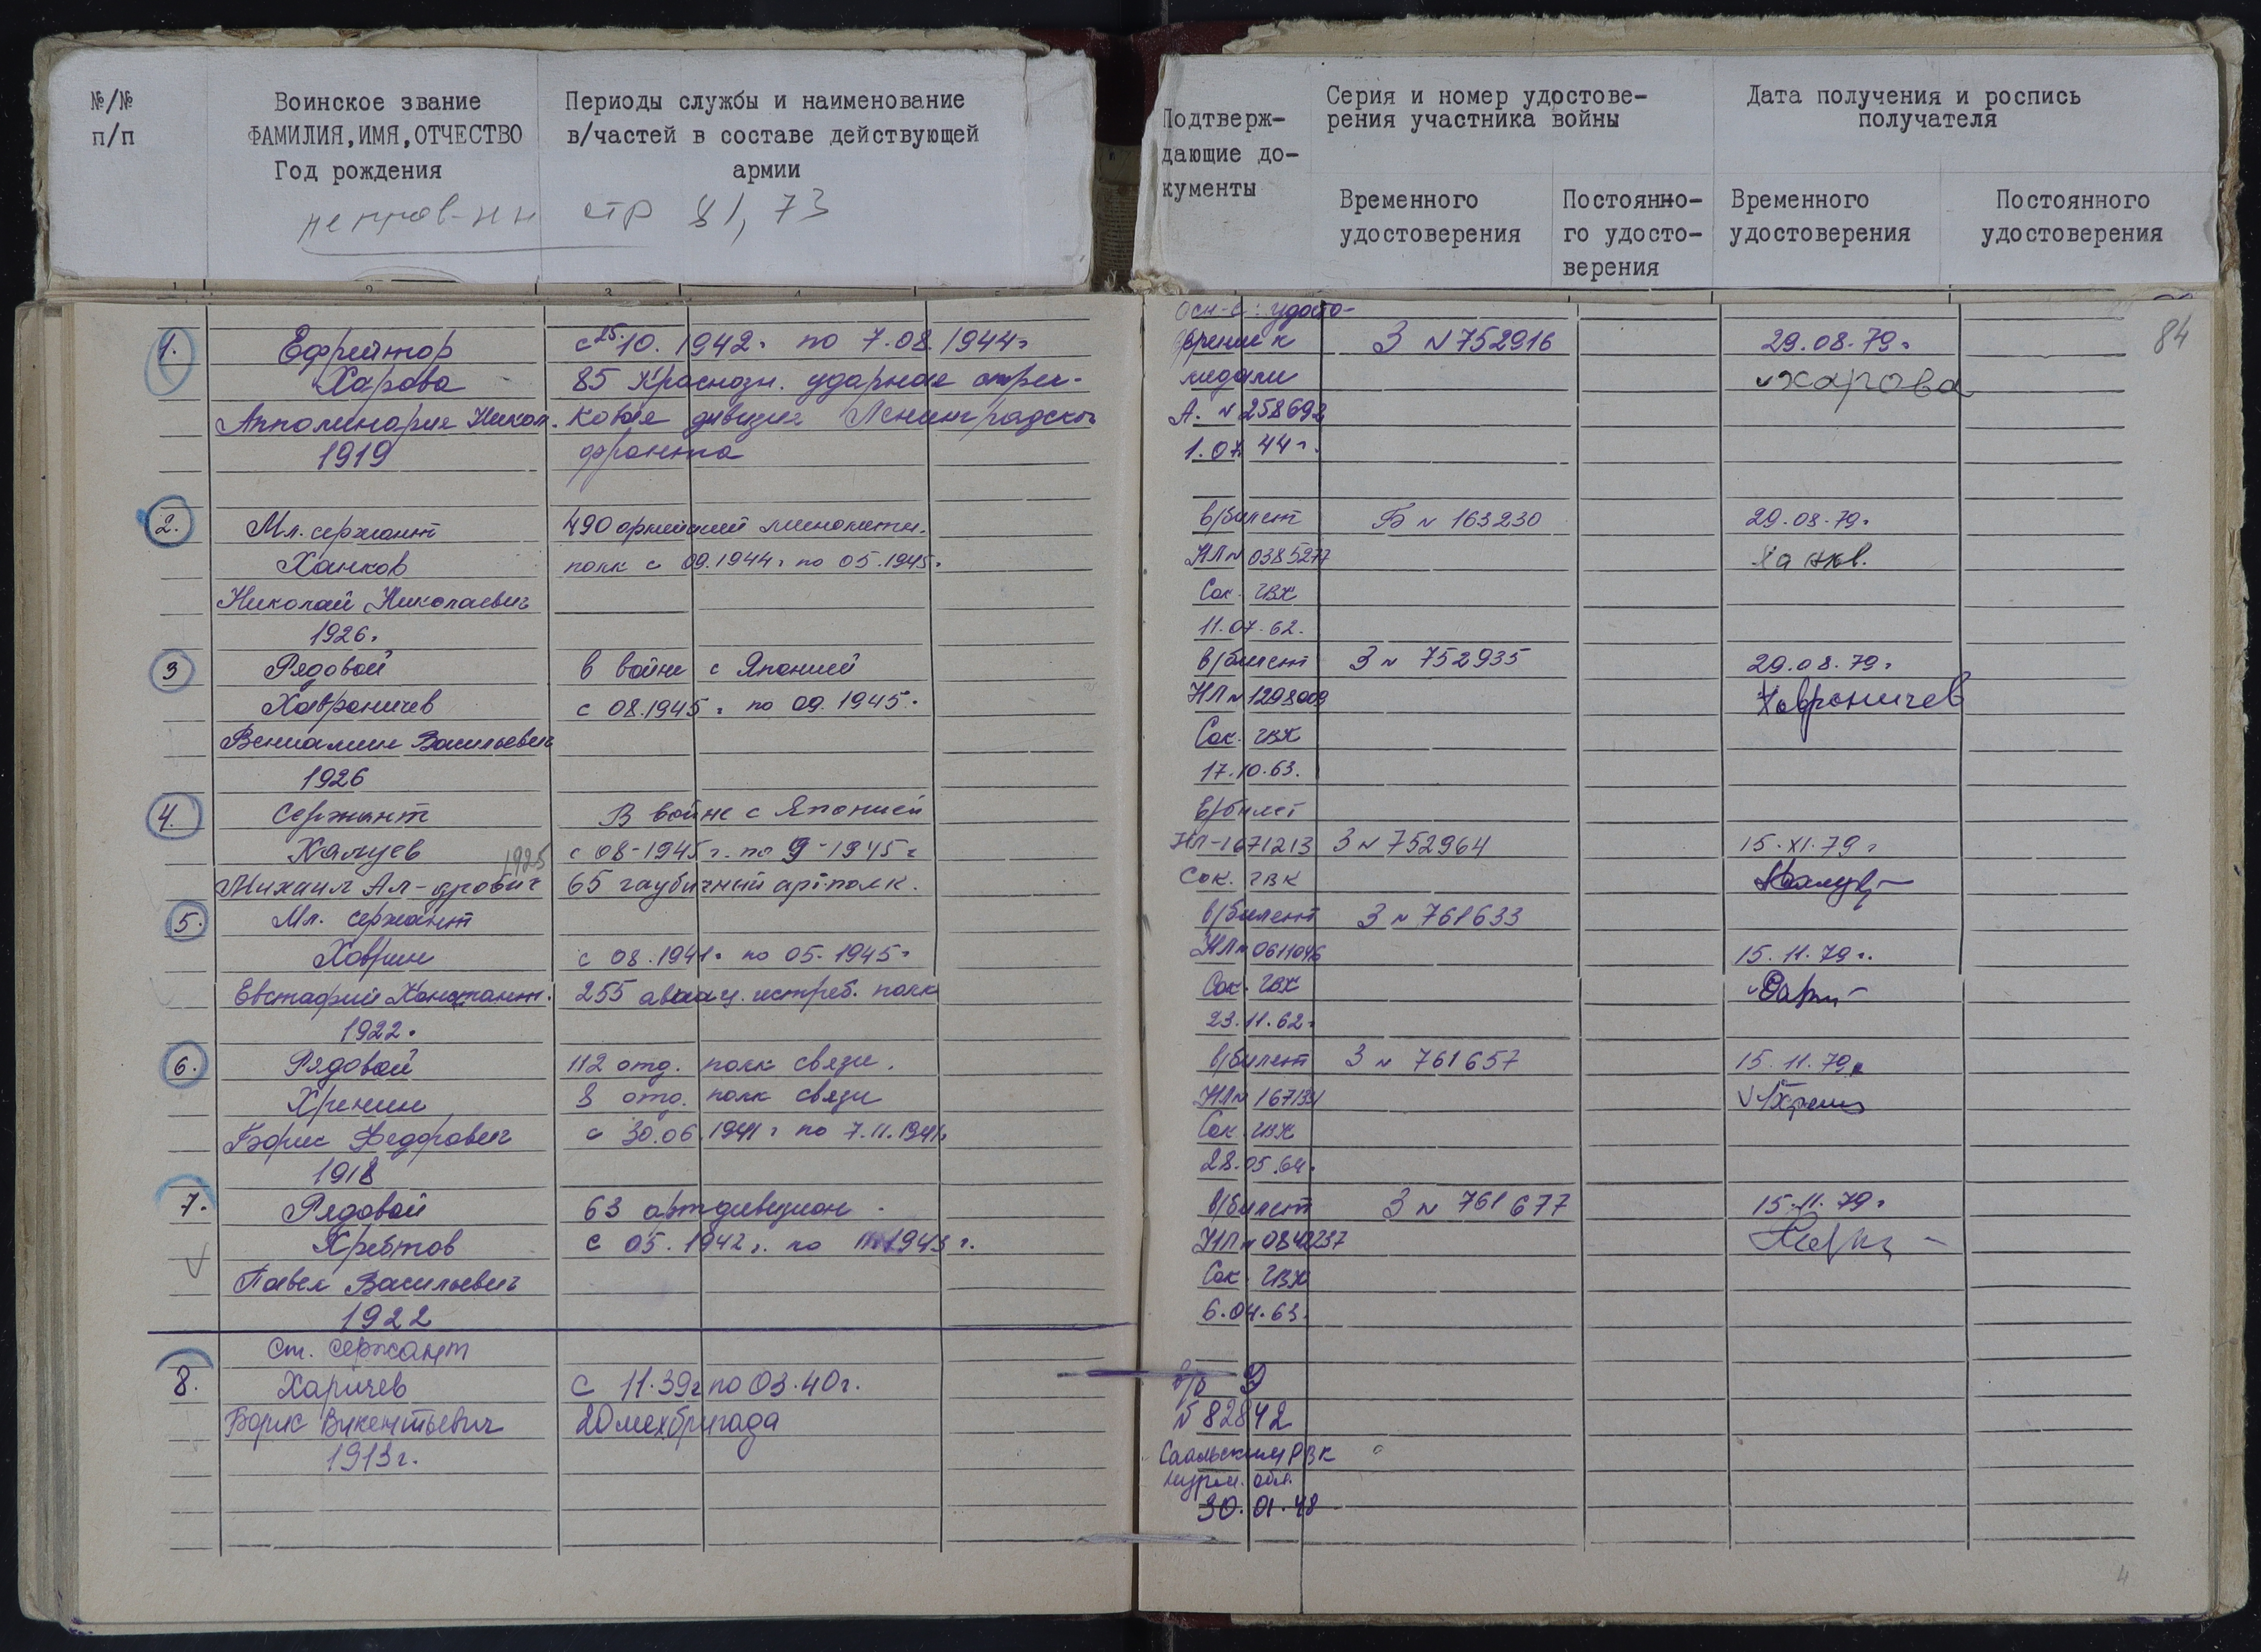 №/№
п/п
Воинское звание
ФАМИЛИЯ,ИМЯ,ОТЧЕСТВО
Год рождения
Периоды службы и наименование
в/частей в составе действующей
армии
стр 81, 73
Подтверж-
дающие до-
кументы
Серия и номер удостове-
рения участника войны
Временного
удостоверения
Постоянно-
го удосто-
верения
Дата получения и роспись
получателя
Временного
удостоверения
Постоянного
удостоверения
84
1.
Ефрейтор
Харова
Апполинария Никол.
1919
с 25.10.1942г по 7.08.1944г
85 Краснозн. ударная стрел-
ковая дивизия Ленинградског
фронта
Осн-е: удосто-
верение к
медали
А. № 258698
1.07.44г.
З № 752916
29.08.79г
Харова
2.
Мл. сержант
Ханков
Николай Николаевич
1926г
490 армейский минометн.
полк с 09.1944г по 05.1945г
в/билет
НЛ № 0385277
Сок. ГВК
11.07.62.
Б № 163230
29.08.79г
3
Рядовой
Хавроничев
Вениамин Васильевич
1926
в войне с Японией
с 08.1945г по 09.1945г
в/билет
НЛ № 1298009
Сок. ГВК
17.10.63.
З № 752935
29.08.79г
Хавроничев
4.
Сержант
Халуев
1925
Михаил Ал-дрович
В войне с Японией
с 08-1945г. по 9-1945г
65 гаубичный артполк.
в/билет
НЛ-1671213
Сок. ГВК
З № 752964
15.XI.79г
5.
Мл. сержант
Хаврин
Евстафий Констант.
1922г
с 08.1941г по 05.1945г
255 авиац. истреб. полк
в/билет
НЛ № 0611046
Сок. ГВК
23.11.62г
З № 761633
15.11.79г.
6.
Рядовой
Хренин
Борис Федорович
1918
112 отд. полк связи.
8 отд. полк связи
с 30.06.1941г по 7.11.1941г
в/билет
НЛ № 167131
Сок. ГВК
28.05.64г
З № 761657
15.11.79г
7.
Рядовой
Хребтов
Павел Васильевич
1922
63 артдивизион
с 05.1942г. по 1943г.
в/билет
НЛ № 0842237
Сок. ГВК
6.04.63.
З № 761677
15.11.79г
8.
Ст. сержант
Харичев
Борис Викентьевич
1913г.
с 11.39г по 03.40г.
20 мехбригада
в/б Э
№ 82842
РВК
мурм. обл.
30.01.48
4